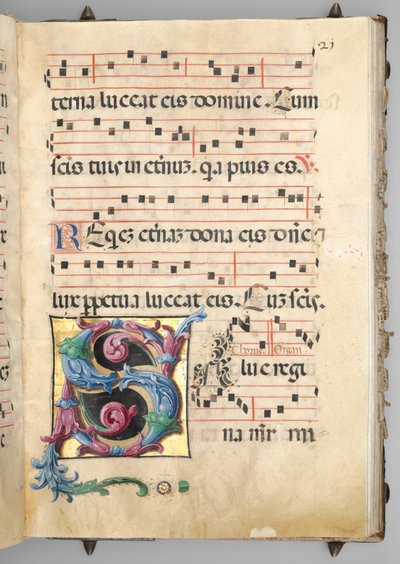 21
terna luccat eis domine. Cum
scis tuis in eternuz. qa pius es. V.
REqez eternaz dona eis dne
lux ppetua luccat eis. Cuz scis.
Chorus Organ
S Alue regi
na mr mi